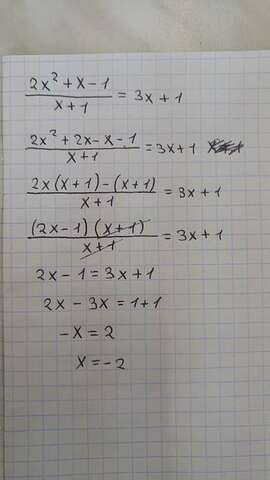 (2x² + x - 1)/(x + 1) = 3x + 1
(2x² + 2x - x - 1)/(x + 1) = 3x + 1
(2x(x + 1) - (x + 1))/(x + 1) = 3x + 1
((2x - 1)(x + 1))/(x + 1) = 3x + 1
2x - 1 = 3x + 1
2x - 3x = 1 + 1
-x = 2
x = -2